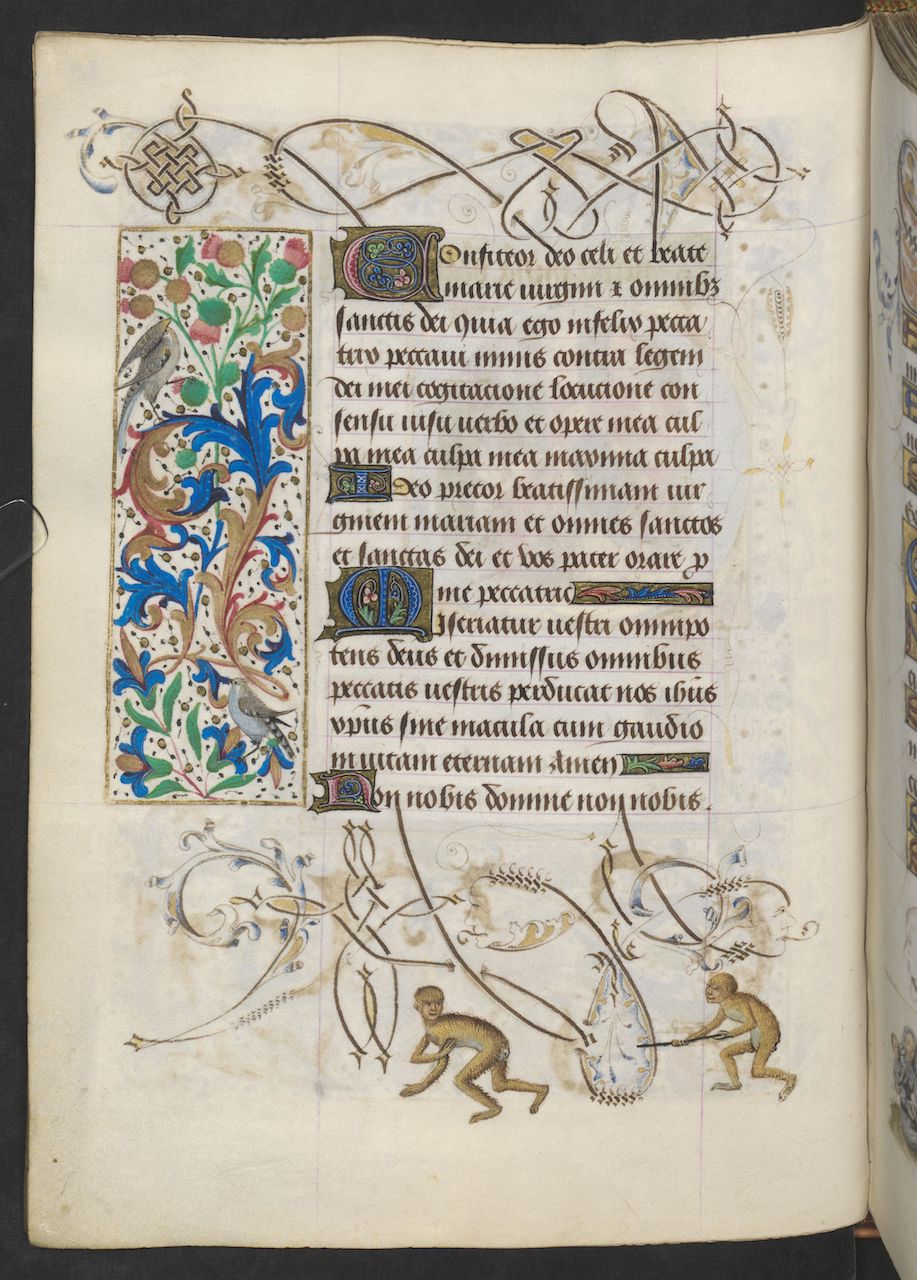 Confiteor deo celi et beate
marie uirgini et omnibꝫ
sanctis dei Quia ego infelix pecca
trix peccaui nimis contra legem
dei mei cogitacione locucione con
sensu uisu uerbo et opere mea cul
pa mea culpa mea maxima culpa
Ideo precor beatissimam uir
ginem mariam et omnes sanctos
et sanctas dei et vos pater orare ꝓ
me peccatrice
Misereatur uestri omnipo
tens deus et dimissis omnibus
peccatis uestris perducat nos ihūs
xp̄us sine macula cum gaudio
in uitam eternam Amen
Non nobis domine non nobis.